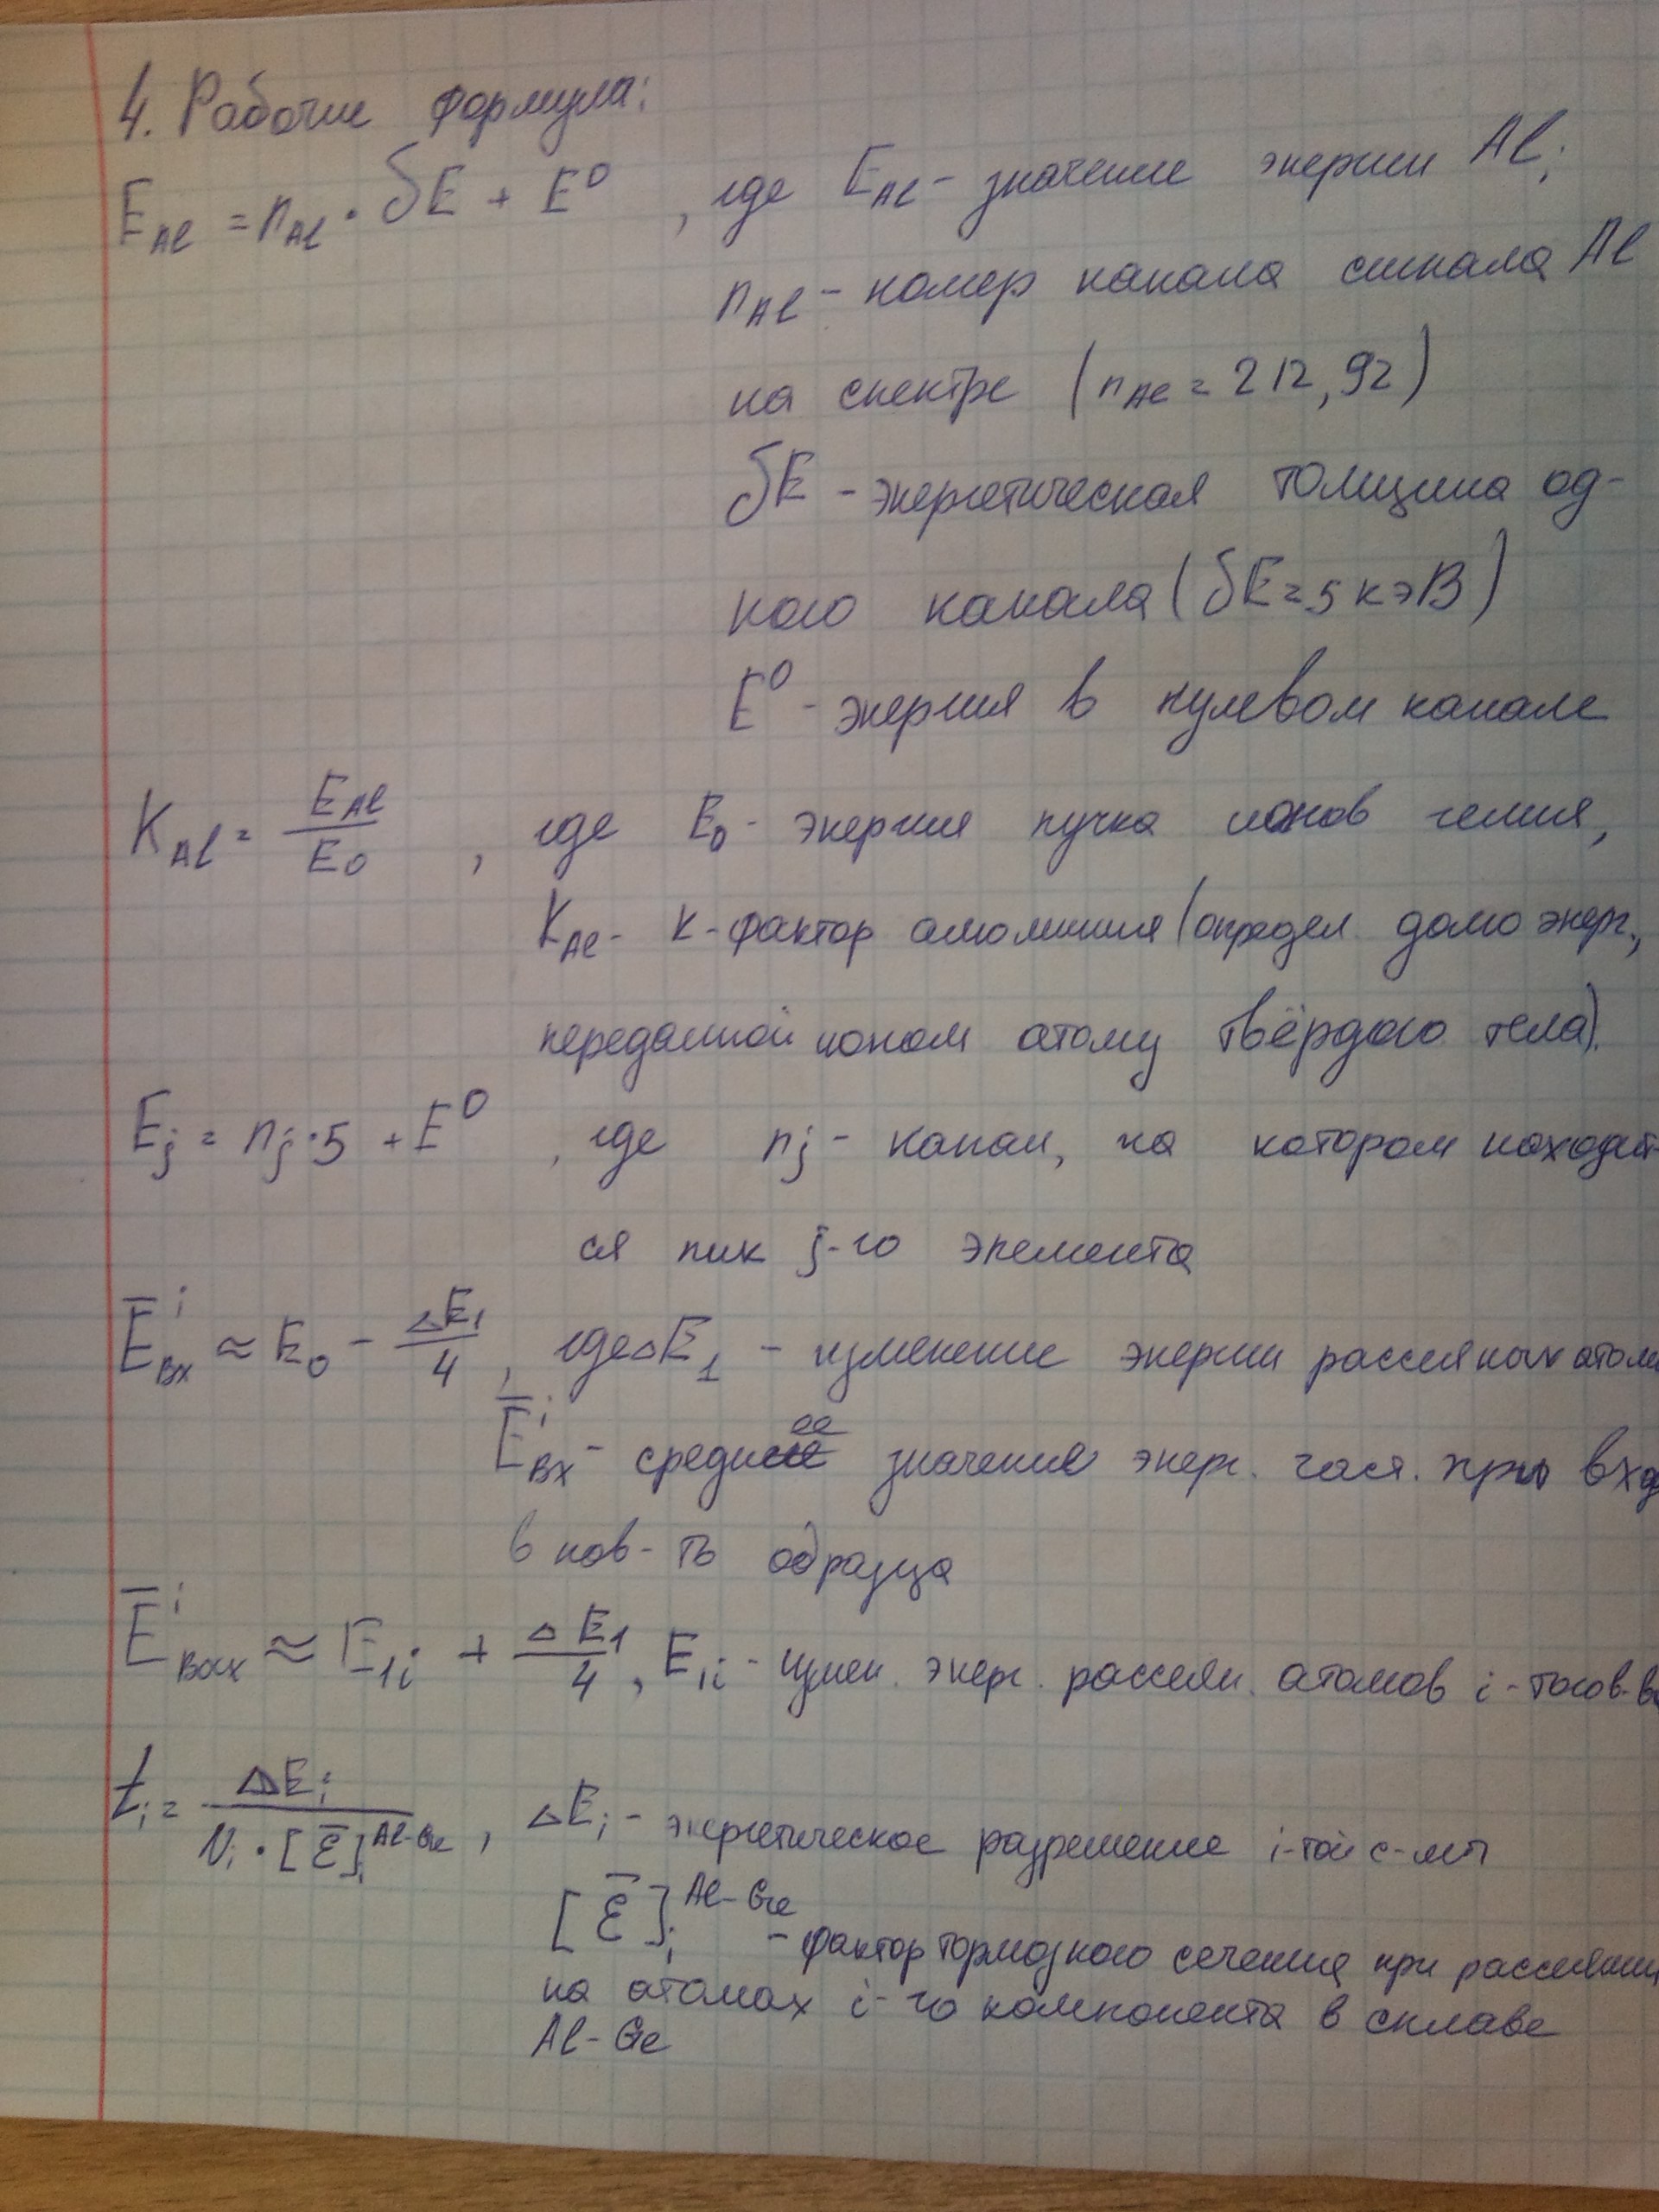 4. Рабочие формулы:
E_Al = n_Al · δE + E⁰ , где E_Al - значение энергии Al;
n_Al - номер канала сигнала Al
на спектре (n_Al = 212,92)
δE - энергетическая толщина од-
ного канала (δE = 5 кэВ)
E⁰ - энергия в нулевом канале
K_Al = E_Al / E_0 , где E_0 - энергия пучка ионов гелия,
K_Al - K-фактор алюминия (определ. долю энерг.,
переданной ионом атому твёрдого тела).
E_j = n_j · 5 + E⁰ , где n_j - канал, на котором находит-
ся пик j-го элемента
Ē_вх^i ≈ E_0 - ΔE_1 / 4 , где ΔE_1 - изменение энергии рассеяных атом
Ē_вх^i - среднее значение энерг. част. при вхо
в пов-ть образца
Ē_вых^i ≈ E_1i + ΔE_1 / 4 , E_1i - измен. энерг. рассеян. атомов i-того
t_i = ΔE_i / N_i · [ε̄]_i^Al-Ge , ΔE_i - энергетическое разрешение i-той с-мы
[ε̄]_i^Al-Ge - фактор тормозного сечения при рассеянии
на атомах i-го компонента в сплаве
Al-Ge